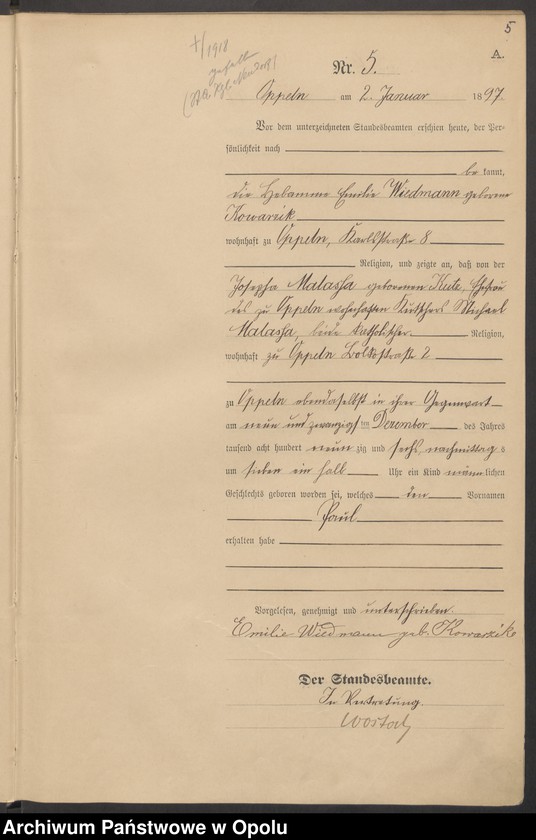 5
A.
†/1918
gefallen
Nr. 5.
Oppeln am 2. Januar 1897
Vor dem unterzeichneten Standesbeamten erschien heute, der Per-
sönlichkeit nach
be kannt,
die Hebamme Emilie Wiedmann geborene
Kowarzik
wohnhaft zu Oppeln, Karlsstraße 8
Religion, und zeigte an, daß von der
Josepha Malasha geborenen Kute, Ehefrau
des zu Oppeln wohnhaften Kutschers Michael
Malasha, beide katholischer Religion,
wohnhaft zu Oppeln Bolkostraße 2
zu Oppeln ebendaselbst in ihrer Gegenwart
am neun und zwanzigsten Dezember des Jahres
tausend acht hundert neun zig und sechs, nachmittags
um sieben ein halb Uhr ein Kind männlichen
Geschlechts geboren worden sei, welches den Vornamen
Paul
erhalten habe
Vorgelesen, genehmigt und unterschrieben.
Emilie Wiedmann geb. Kowarzik
Der Standesbeamte.
In Vertretung.
Archiwum Państwowe w Opolu